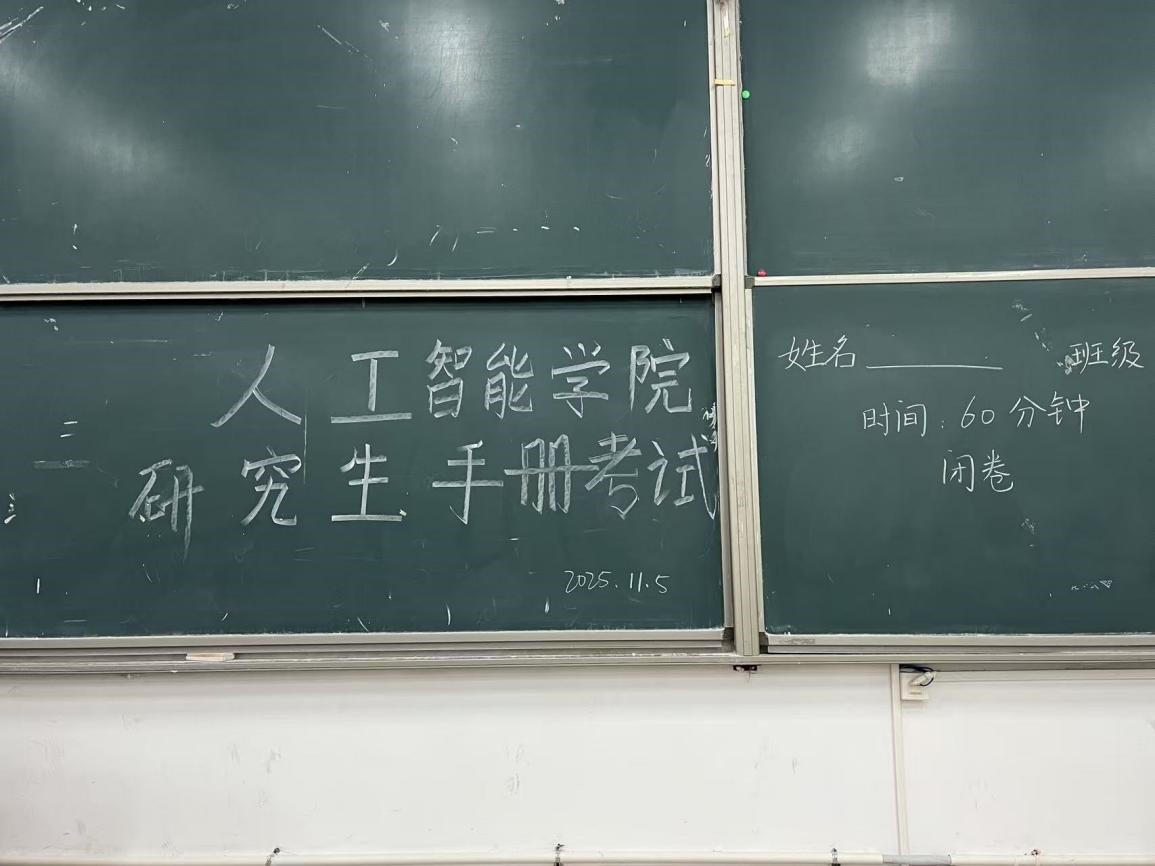 人工智能学院
研究生手册考试
2025.11.5
姓名______ 班级
时间:60分钟
闭卷